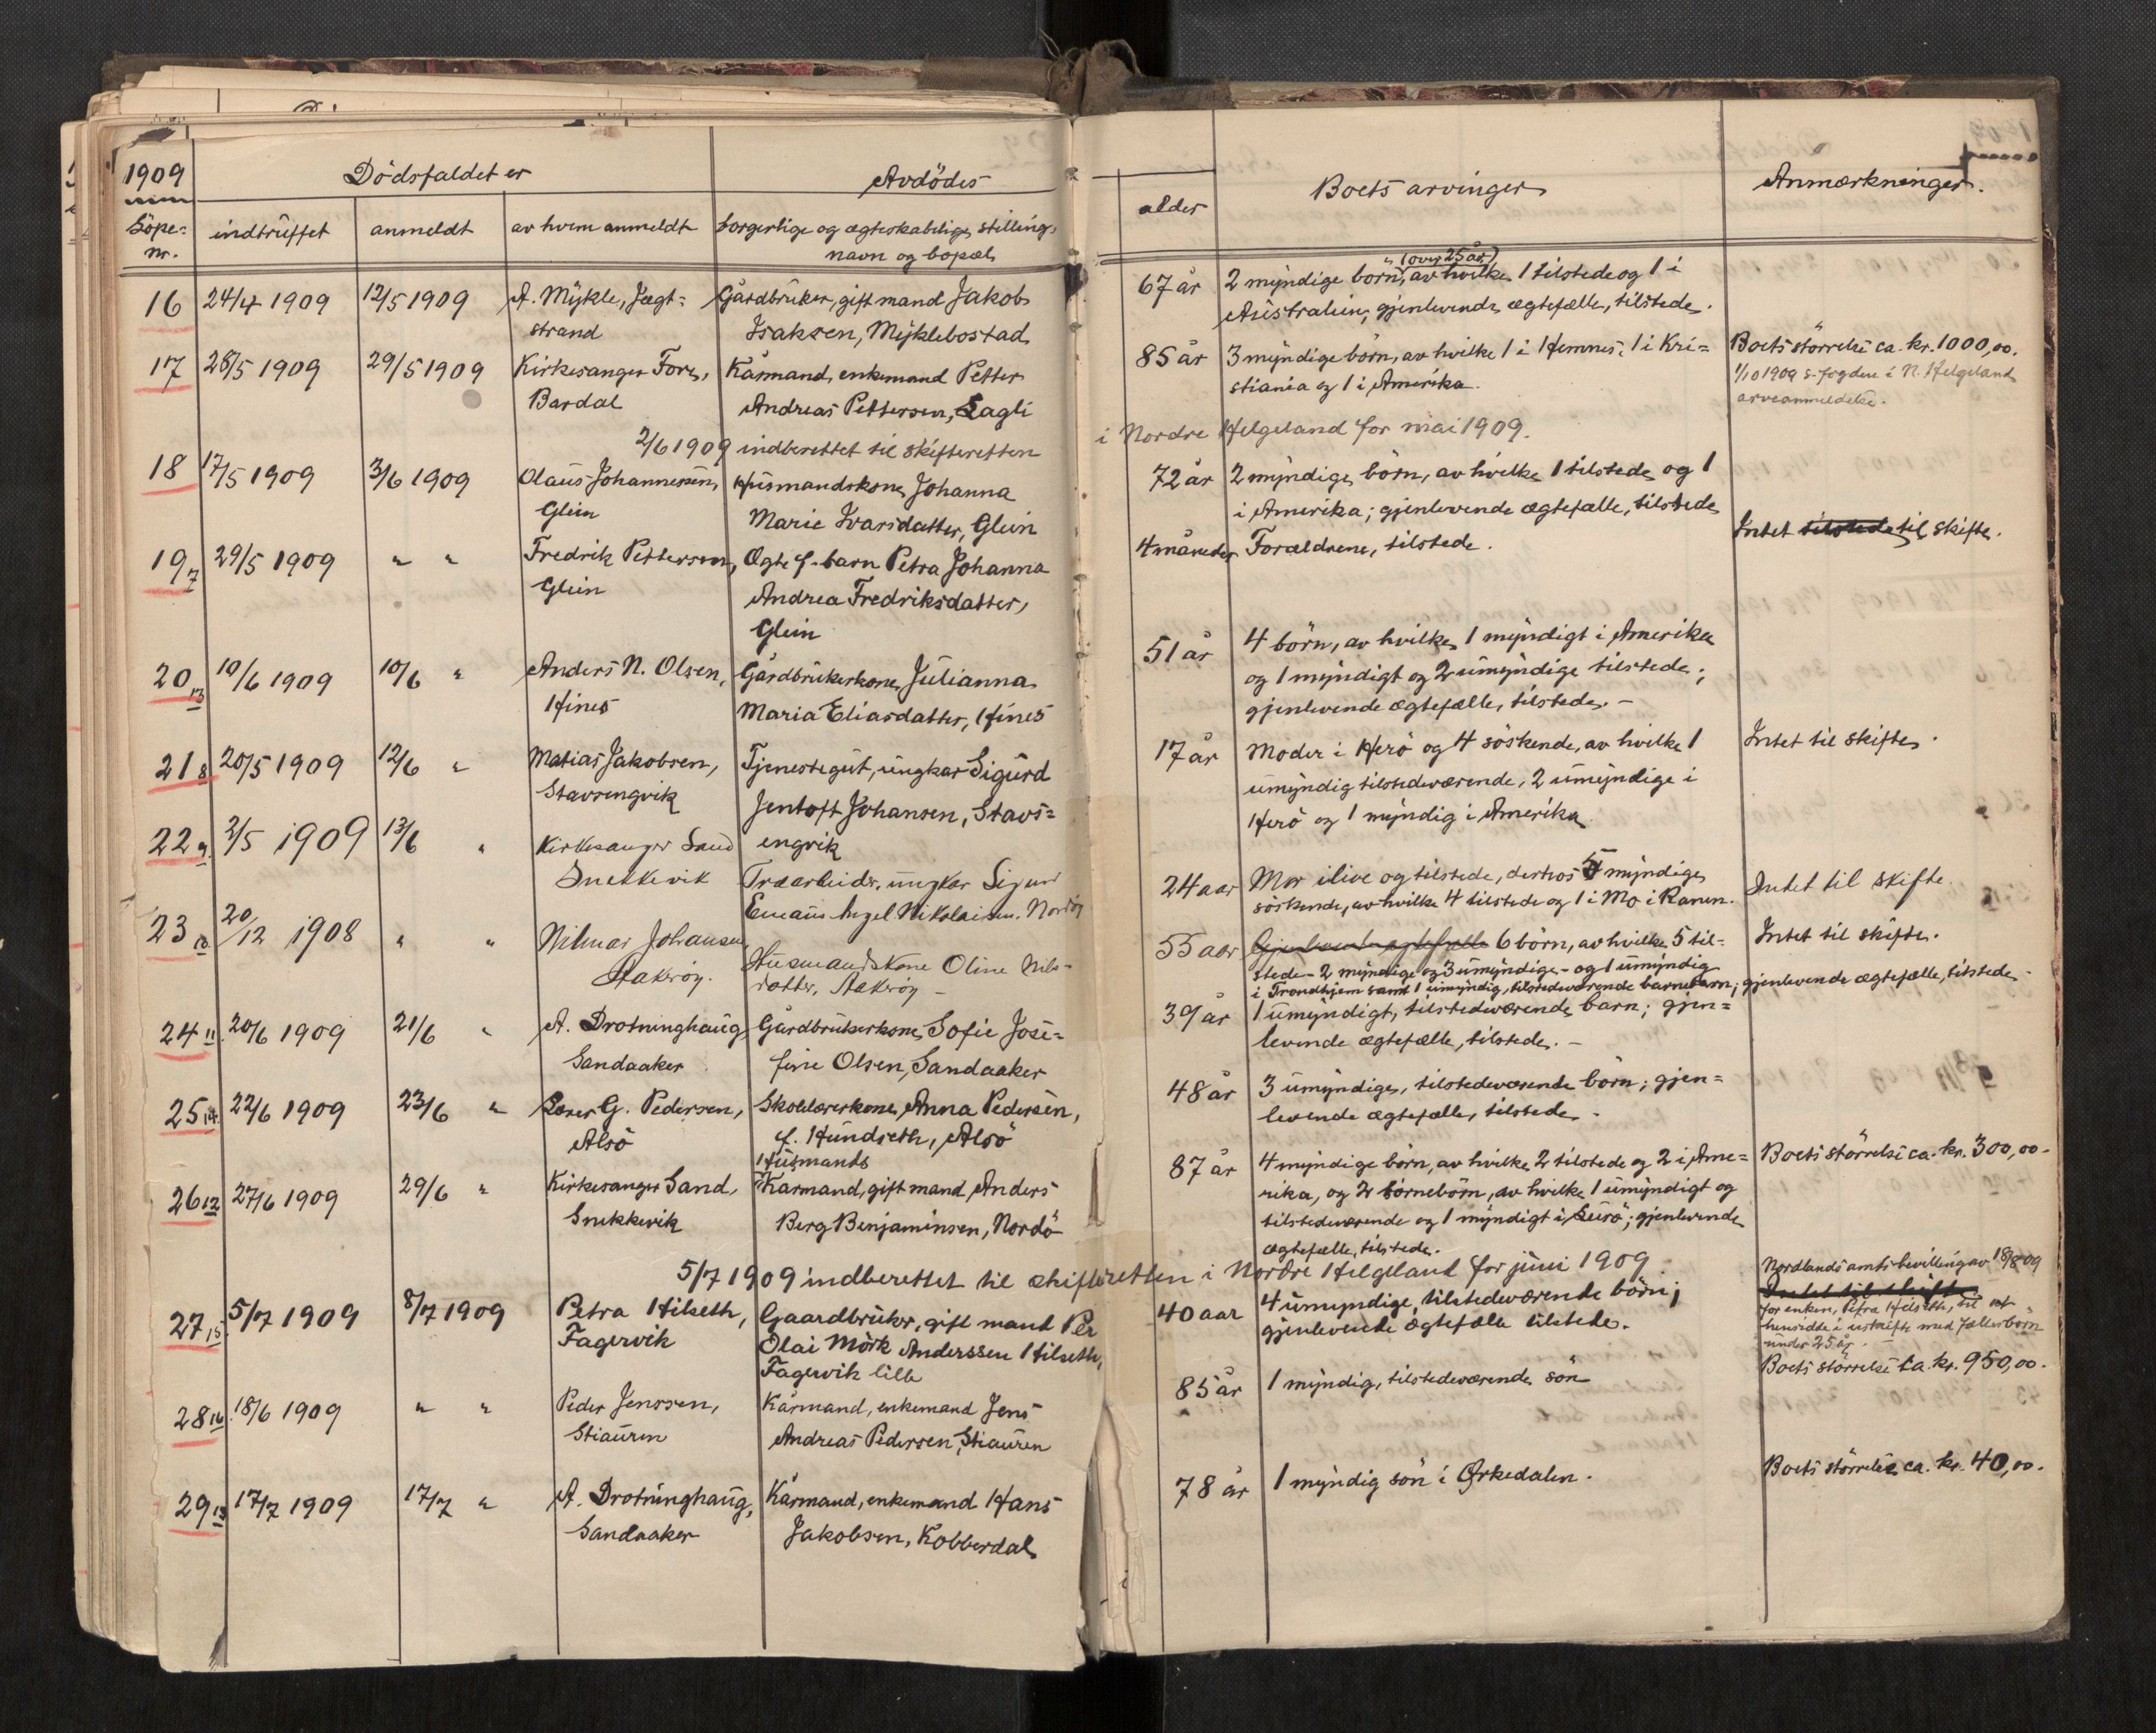 1909
Dödsfaldet er
Avdödes
Löpe-
nr.
indtruffet
anmeldt
av hvem anmeldt
borgerlige og ægteskabelige stilling,
navn og bopæl
alder
Boets arvinger
Anmærkninger.
16 24/4 1909 12/5 1909 A. Mykle, Jægt- Gårdbruker, gift mand Jakob
strand Isaksen, Myklebostad
67 år 2 myndige born, (over 25 år) av hvilke 1 tilstede og 1 i
Australien; gjenlevende ægtefælle, tilstede.
17 28/5 1909 29/5 1909 Kirkesanger Fore, Kårmand, enkemand Petter
Bardal Andreas Pettersen, Lagli
85 år 3 myndige börn, av hvilke 1 i Hemnes, 1 i Kri-
stiania og 1 i Amerika.
Boets störrelse ca. kr. 1000,00.
1/10 1909 s. fogden i N. Helgeland
arveanmeldelse.
2/6 1909 indberettet til skifteretten i Nordre Helgeland for mai 1909.
18 17/5 1909 3/6 1909 Olaus Johannesen, Husmandskone Johanna
Glein Marie Ivarsdatter, Glein
72 år 2 myndige börn, av hvilke 1 tilstede og 1
i Amerika; gjenlevende ægtefælle, tilstede
19 7 29/5 1909 " " Fredrik Pettersen, Ægtef. barn Petra Johanna
Glein Andrea Fredriksdatter,
Glein
4 måneder Forældrene, tilstede.
Intet tilstede til skifte.
20 13 10/6 1909 10/6 " Anders N. Olsen, Gårdbrukerkone Julianna
Hines Maria Eliasdatter, Hines
51 år 4 börn, av hvilke 1 myndigt i Amerika
og 1 myndigt og 2 umyndige tilstede;
gjenlevende ægtefælle, tilstede. -
21 8 20/5 1909 12/6 " Matias Jakobsen, Tjenestegut, ungkar Sigurd
Stavsengvik Jentoft Johansen, Stavs-
engvik
17 år Moder i Herö og 4 söskende, av hvilke 1
umyndig tilstedeværende, 2 umyndige i
Herö og 1 myndig i Amerika
Intet til skifte.
22 9. 2/5 1909 13/6 " Kirkesanger Sand Træarbeider, ungkar Sigurd
Snekkevik Emaus Angel Nikolaisen. Nordö
24 aar Mor ilive og tilstede, derhos 5 myndige
söskende, av hvilke 4 tilstede og 1 i Mo i Ranen.
Intet til skifte.
23 10 20/12 1908 " " Hilmar Johansen, Husmandskone Oline Nils-
Stakröy. datter, Stakröy -
55 aar Gjenlevende ægtefælle 6 börn, av hvilke 5 til-
stede - 2 myndige og 3 umyndige - og 1 umyndig
i Trondhjem samt 1 umyndig, tilstedeværende barnebarn; gjenlevende ægtefælle, tilstede
Intet til skifte.
24 11. 20/6 1909 21/6 " A. Drotninghaug, Gårdbrukerkone Sofie Jose-
Sandaaker fine Olsen, Sandaaker
39 år 1 umyndigt, tilstedeværende barn; gjen-
levende ægtefælle, tilstede. -
25 14. 22/6 1909 23/6 " Lærer G. Pedersen, Skolelærerkone Anna Pedersen,
Alsö f. Hundseth, Alsö
48 år 3 umyndige, tilstedeværende börn; gjen-
levende ægtefælle, tilstede.
26 12 27/6 1909 29/6 " Kirkesanger Sand, Husmands
Karmand, gift mand Anders
Snekkevik Berg Benjaminsen, Nordö
87 år 4 myndige börn, av hvilke 2 tilstede og 2 i Ame-
rika, og 2 börnebörn, av hvilke 1 umyndigt og
tilstedeværende og 1 myndigt i Lurö; gjenlevende
ægtefælle, tilstede.
Boets störrelse ca. kr. 300,00.
5/7 1909 indberettet til skifteretten i Nordre Helgeland for juni 1909.
27 15. 5/7 1909 8/7 1909 Petra Hilseth, Gaardbruker, gift mand Per
Fagervik Olai Mörk Anderssen Hilseth,
Fagervik lille
40 aar 4 umyndige, tilstedeværende börn;
gjenlevende ægtefælle tilstede.
Nordlands amts bevilling av 18/8 09
Intet til skifte
for enken, Petra Hilseth, til at
hensidde i uskifte med fællesborn
under 25 år. -
28 16. 18/6 1909 " " Peder Jenssen, Kårmand, enkemand Jens
Stiauren Andreas Pedersen, Stiauren
85 år 1 myndig, tilstedeværende sön
Boets störrelse ca. kr. 950,00.
29 13 17/7 1909 17/7 " A. Drotninghaug, Kårmand, enkemand Hans
Sandaaker Jakobsen, Kobberdal
78 år 1 myndig sön i Ørkedalen.
Boets störrelse ca. kr. 40,00.